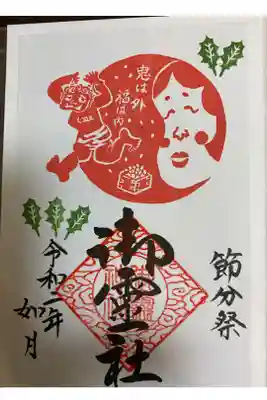 鬼は外
福は内
節分祭
御霊社
令和二年
如月